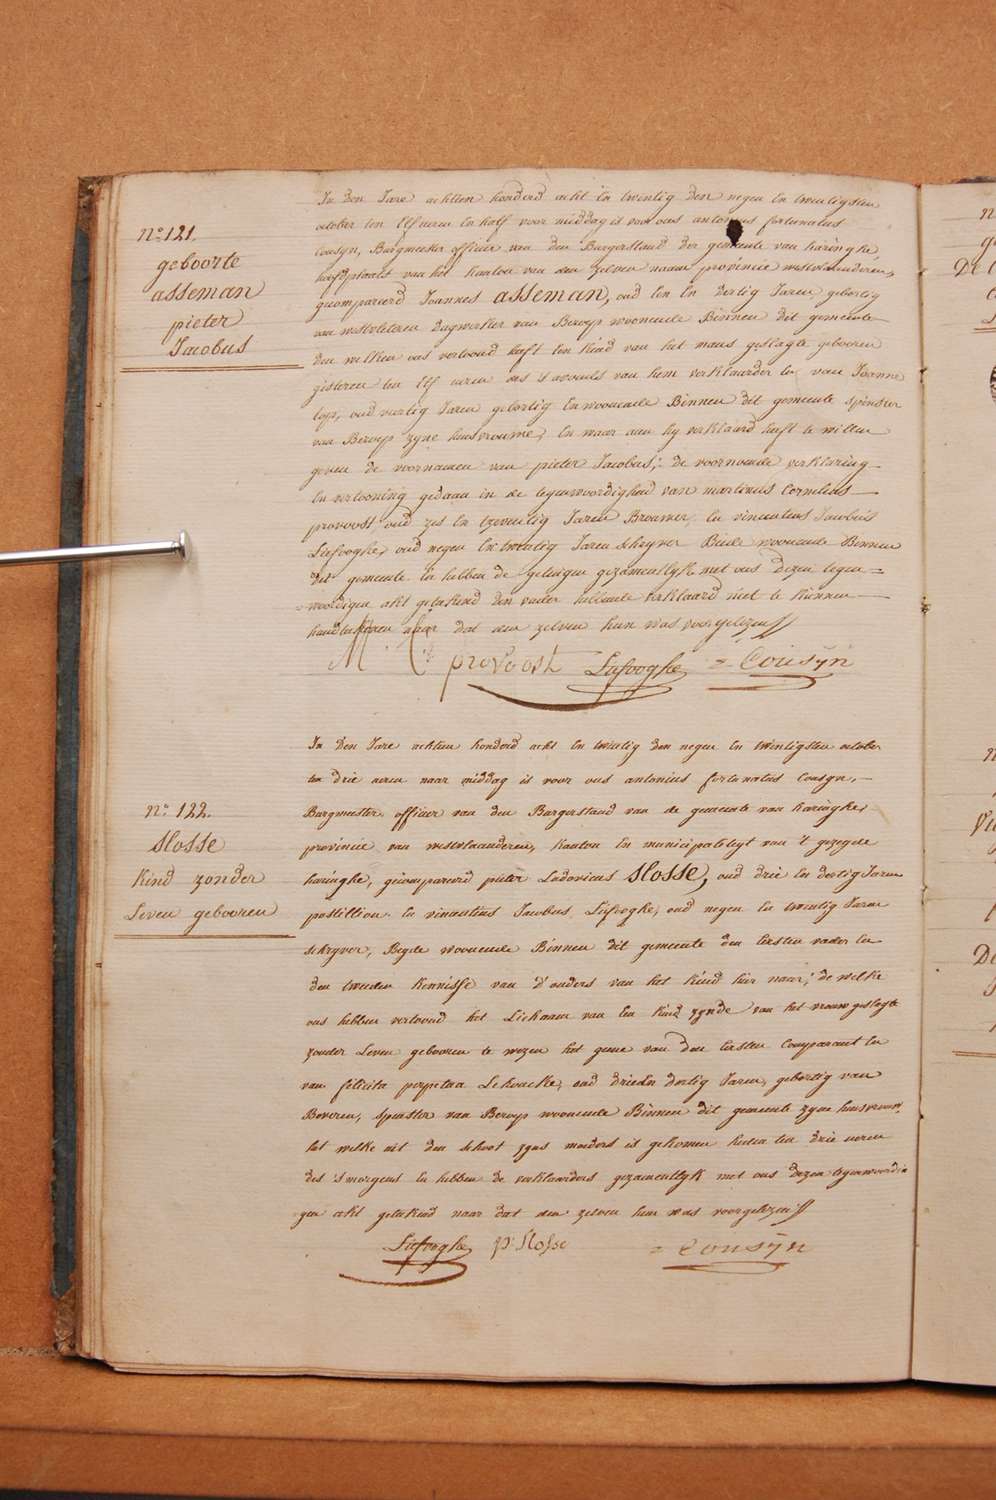 N.o 121.
geboorte
asseman
pieter
Jacobus
In den Jare achtien honderd acht En twintig den negen En twentigsten
october ten Elf uren En half voor middag is voor ons antonius fortunatus
Cousyn, Burgmeester officier van den Burgerstand der gemeente van haringhe,
hoofdplaatse van het kanton van den zelven naam provincie westvlaanderen,
gecompareerd Joannes asseman, oud Een En dertig Jaren gebortig
van westvleteren dagwerker van Beroep woonende Binnen dit gemeente
den welken ons vertoond heeft Een kind van het mans geslagte gebooren
gisteren ten Elf uren des s'avonds van hem verklaarder En van Joanne
Top, oud veertig Jaren gebortig En woonende Binnen dit gemeente spinster
van Beroep zyne huisvrouwe, En waar aen hy verklaard heeft te willen
geven de voornamen van pieter Jacobus; de voornoemde verklaring
En vertooning gedaan in de tegenwoordigheid van martinus Cornelius
provoost oud zes En tzeventig Jaren Brouwer, En vincentius Jacobus
Liefooghe, oud negen En twentig Jaren schryver Beide woonende Binnen
dit gemeente. En hebben de getuigen gezamentlyk met ons dezen tegen=
=woordigen akt geteekend den vader hebbende verklaard niet te kunnen
handteekenen naar dat den zelven hun was voorgelezen //
M. C. provoost Liefooghe = Cousÿn
N.o 122.
Slosse
kind zonder
Leven gebooren
In den Jare achtien honderd acht En twintig den negen En twintigsten october
ten drie uren naar middag is voor ons antonius fortunatus Cousyn,
Burgmeester officier van den Burgerstand van de gemeente van haringhe,
provincie van westvlaanderen, kanton En municipaliteyt van 't gezegde
haringhe, gecompareerd pieter Ludovicus Slosse, oud drie En dertig Jaren
postillion En vincentius Jacobus Liefooghe, oud negen En twentig Jaren
schryver, Beyde woonende Binnen dit gemeente den Eersten vader En
den tweeden kennisse van d'ouders van het kind hier naar; de welke
ons hebben vertoond het Lichaam van Een kind zynde van het vrouwgeslagte
zonder Leven gebooren te wezen het gene van den Eersten Comparant En
van felicita perpetua Lehoucke, oud drieEn dertig Jaren, gebortig van
Beveren, spinster van Beroep woonende Binnen dit gemeente zyne huisvrouw,
het welke uit den schoot zyns moeders is gekomen heden ten drie uren
des s'morgens En hebben de verklaarders gezamentlyk met ons dezen tegenwoordi=
gen akt geteekend naar dat den zelven hun was voorgelezen //
Liefooghe p: Slosse = Cousÿn